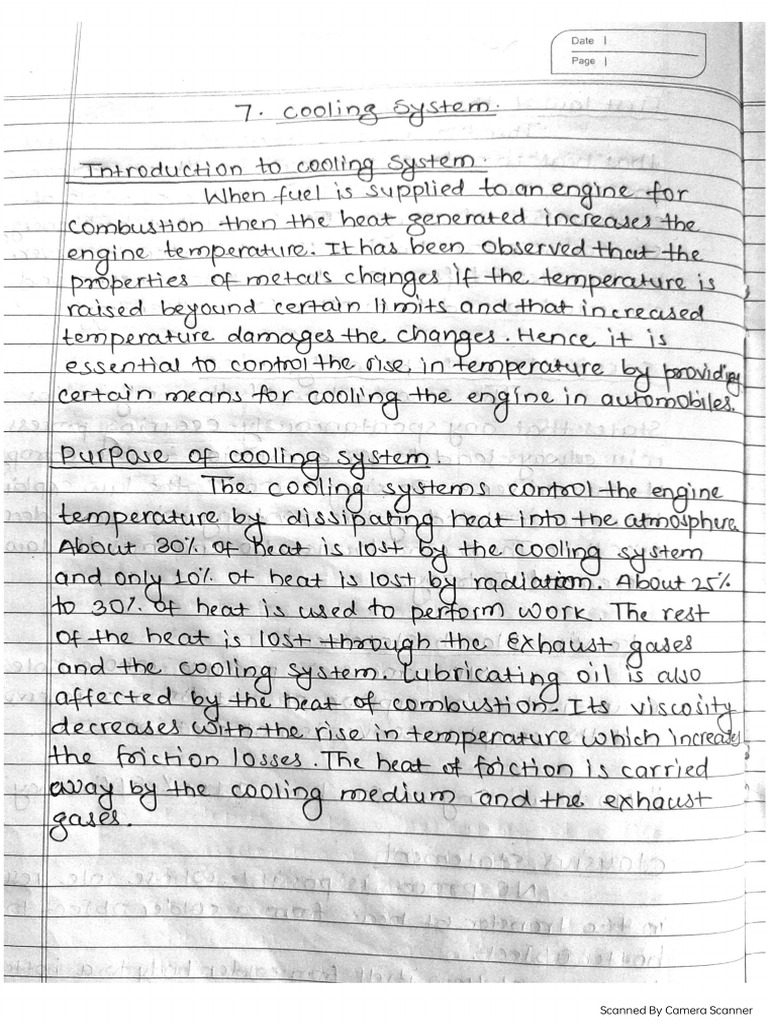 Date
Page
7. Cooling System.
Introduction to cooling system.
When fuel is supplied to an engine for
combustion then the heat generated increases the
engine temperature. It has been observed that the
properties of metals changes if the temperature is
raised beyound certain limits and that increased
temperature damages the changes. Hence it is
essential to control the rise in temperature by providing
certain means for cooling the engine in automobiles.
Purpose of cooling system.
The cooling systems control the engine
temperature by dissipating heat into the atmosphere.
About 30% of heat is lost by the cooling system
and only 10% of heat is lost by radiation. About 25%
to 30% of heat is used to perform work. The rest
of the heat is lost through the exhaust gases
and the cooling system. Lubricating oil is also
affected by the heat of combustion. Its viscosity
decreases with the rise in temperature which increases
the friction losses. The heat of friction is carried
away by the cooling medium and the exhaust
gases.
Scanned By Camera Scanner